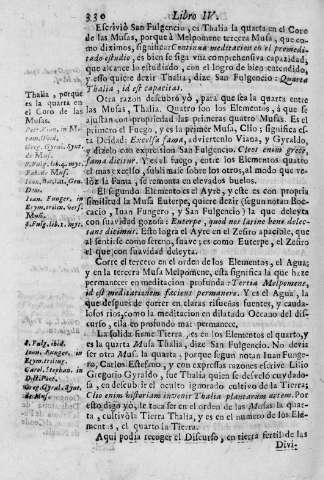 330 Libro IV.
Escrivió San Fulgencio, es Thalia la quarta en el Coro
de las Musas, porque à Melpomene tercera Musa, que co-
mo diximos, significa: Continua meditacion en el premedi-
tado estudio, es bien se siga vna comprehensiva capazidad,
que alcance lo estudiado, con el logro de bien entendido,
y esso quiere dezir Thalia, dize San Fulgencio: Quarta
Thalia, id est capacitas.
Otra razon descubrò yò, para que sea la quarta entre
las Musas, Thalia. Quatro son los Elementos, à que se
ajustan con propriedad las primeras quatro Musas. Es el
primero el Fuego, y es la primer Musa, Clio; significa es-
ta Deidad: Excelsa fama, advirtiendo Viana, y Gyraldo,
y dizelo con expression San Fulgencio. Cleos enim græce,
fama dicitur. Y es el fuego, entre los Elementos quatro
el mas excelso, sublimase sobre los otros, al modo que ve-
lòz la Fama, se remonta en elevados buelos.
El segundo Elemento es el Ayre, y este es con propria
similitud la Musa Euterpe, quiere dezir (segun notan Boc-
cacio, Iuan Fungero, y San Fulgencio) la que deleyta
con suavidad gozosa: Euterpe, quod nos latine bene delec-
tans dicimus. Esto logra el Ayre en el Zefiro apacible, que
al sentirse como sereno, suave; es como Euterpe, el Zefiro
el que con suavidad deleyta.
Corre el tercero en el orden de los Elementos, el Agua;
y en la tercera Musa Melpomene, esta significa la que haze
permanecer en meditacion profunda: Tertia Melpomene,
id est meditationem faciens permanere. Y es el Agua, la
que despues de correr en claras risueñas fuentes, y cauda-
losos rios, como la meditacion en dilatado Occeano del dis-
curso, ella en profundo mar permanece.
La solida firme Tierra, es en los Elementos el quarto, y
es la quarta Musa Thalia, dize San Fulgencio. No devia
ser otra Musa la quarta, porque segun notan Iuan Funge-
ro, Carlos Estefano, y con expressas razones escrive Lilio
Gregorio Gyraldo, fue Thalia quien se desvelò cuydado-
sa, en descubrir el oculto ignorado cultivo de la Tierra;
Clio enim historiam invenit Thalia plantarum artem. Por
esto digo yò, le toca ser en el orden de las Musas la quar-
ta, cultivò la Tierra Thalia, y es en el numero de los Ele-
mentos, el quarto la Tierra.
Aqui podia recoger el Discurso, en tierra fertil de las
Divi-
Thalia, porque
es la quarta en
el Coro de las
Musas.
S. Fulg. lib. 1. myt.
S. Fulg. ibid.
Ioan. Funger. in
Carol. Stephan. in
de Mus.